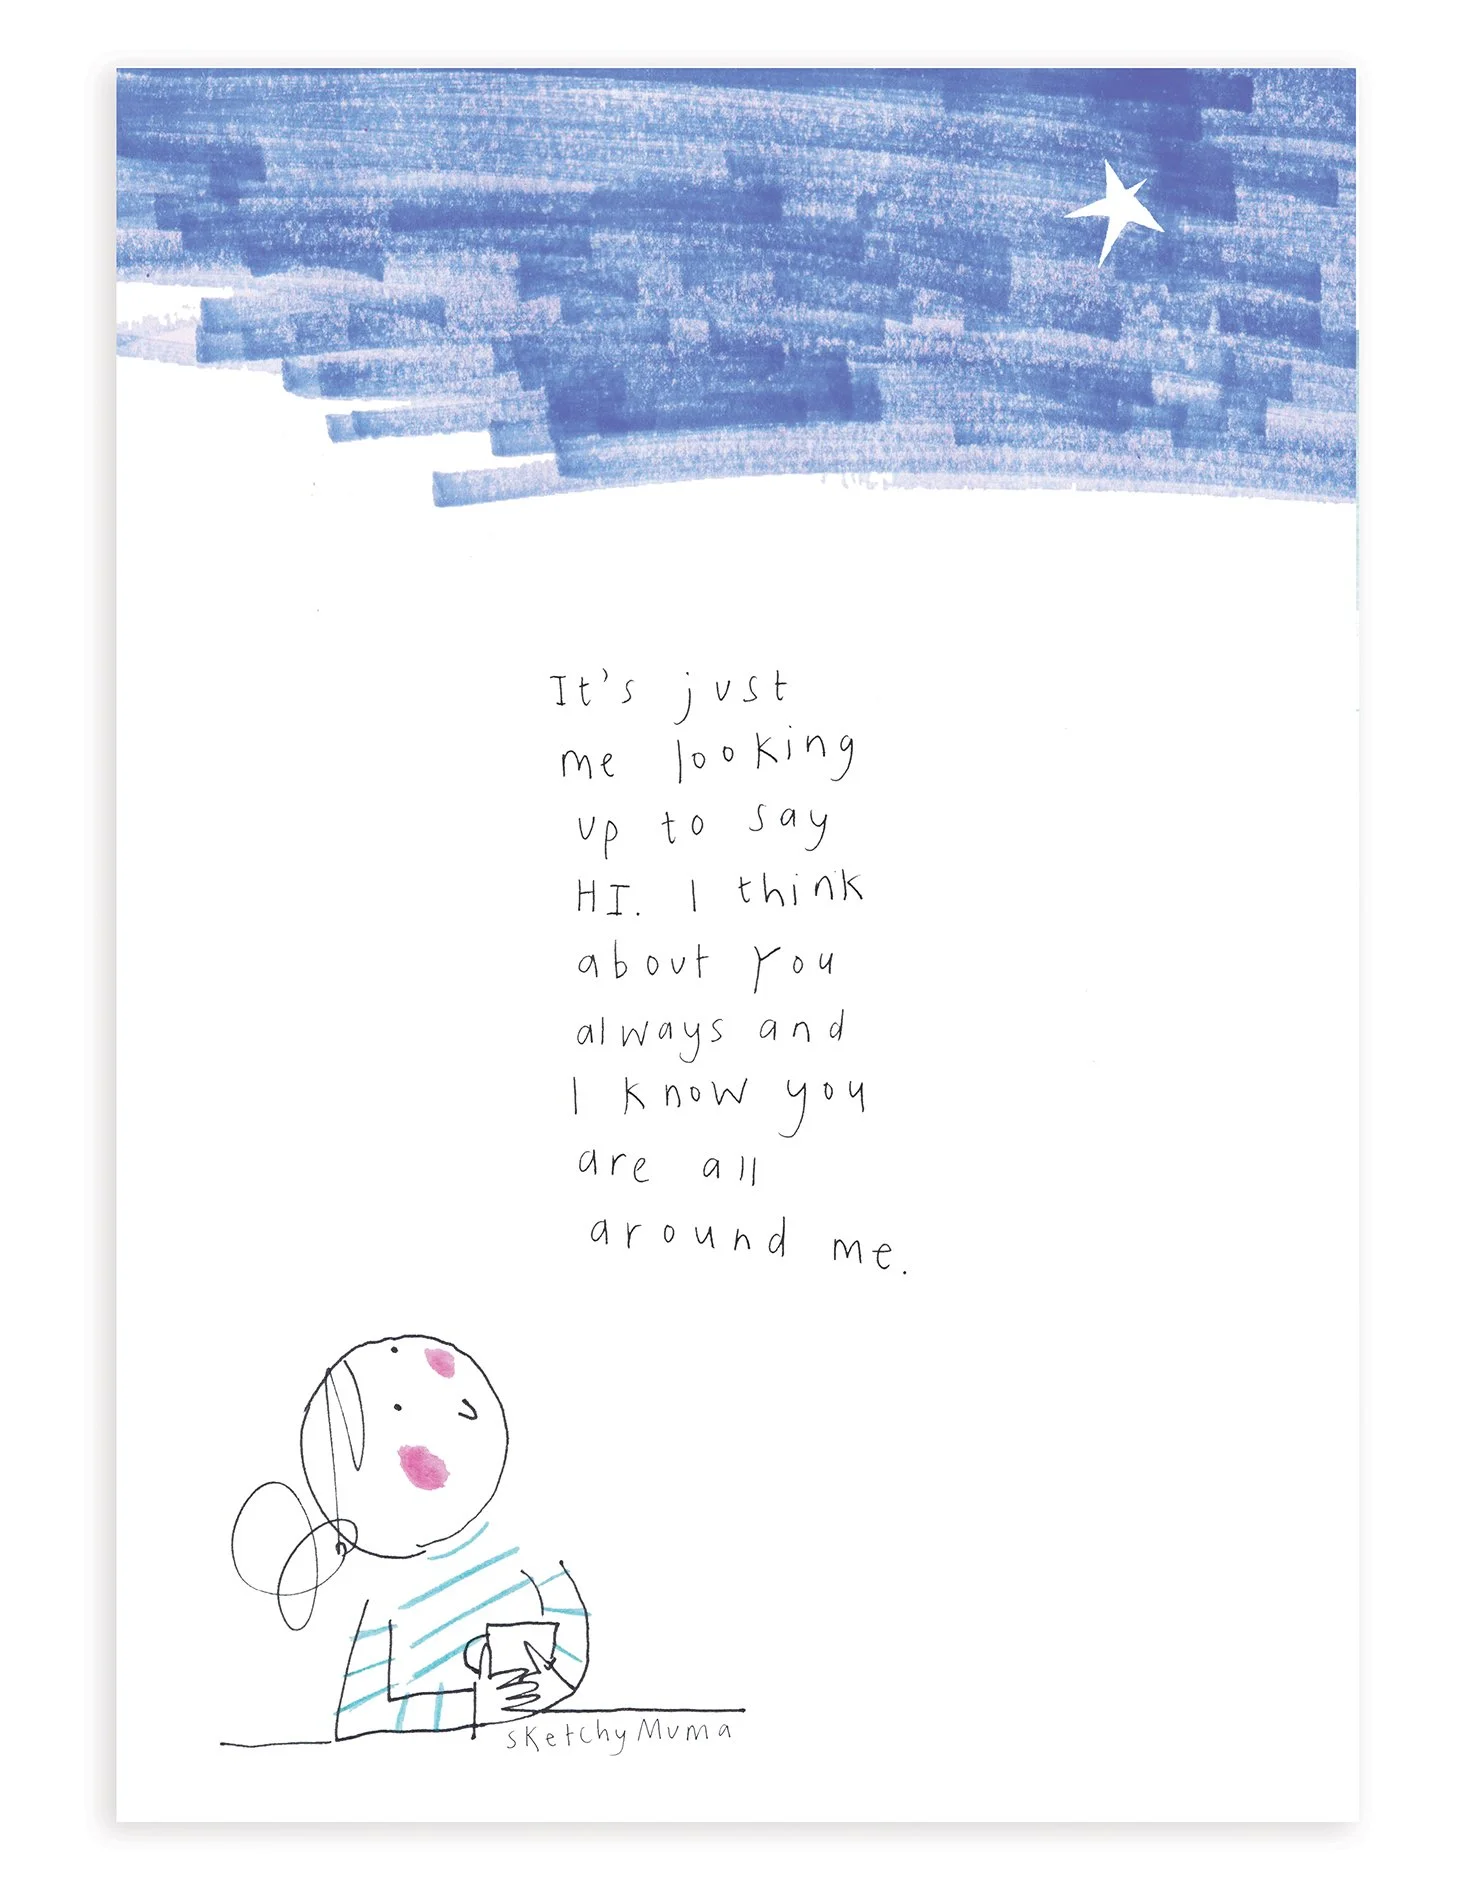 It's just
me looking
up to say
HI. I think
about you
always and
I know you
are all
around me.
sketchyMuma